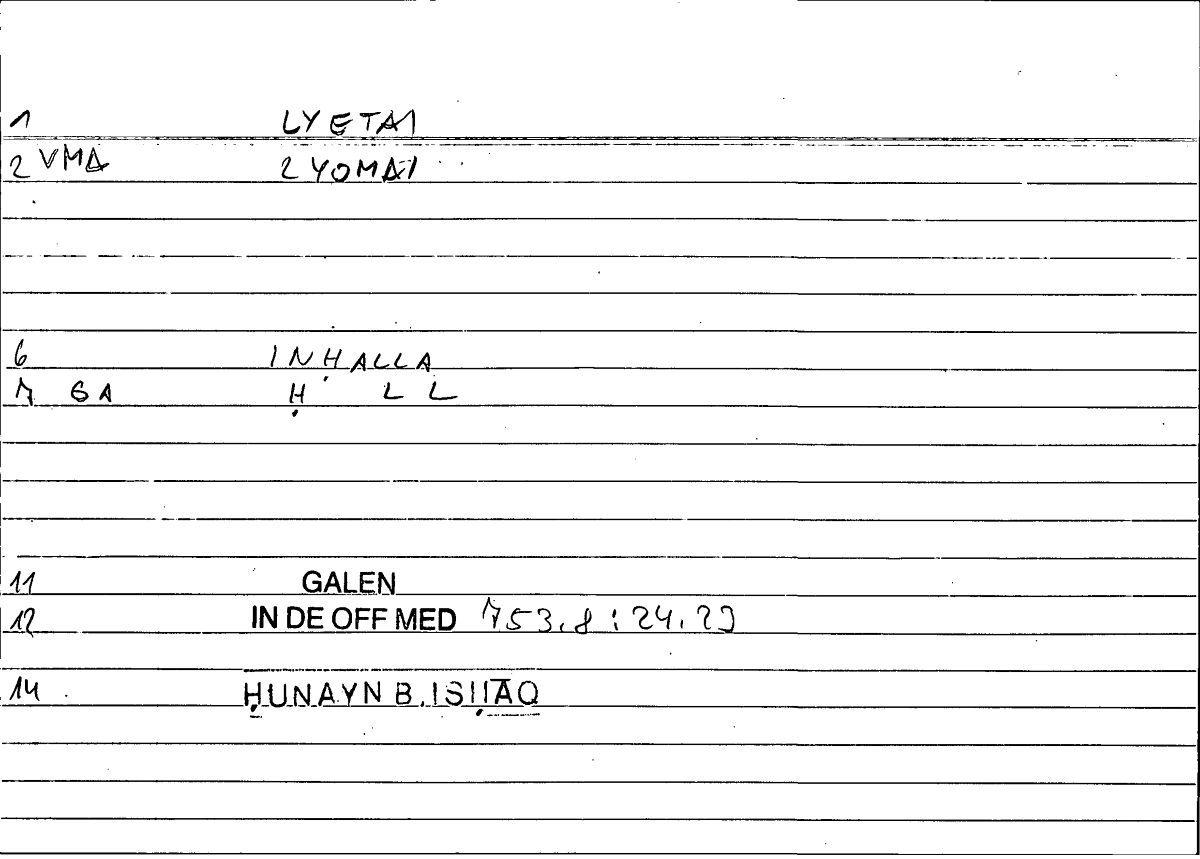 1 LYETAI
2 VMA LYOMAI
6 INḤALLA
7 GA Ḥ L L
11 GALEN
12 IN DE OFF MED 753.8 : 24.29
14 ḤUNAYN B. ISḤĀQ